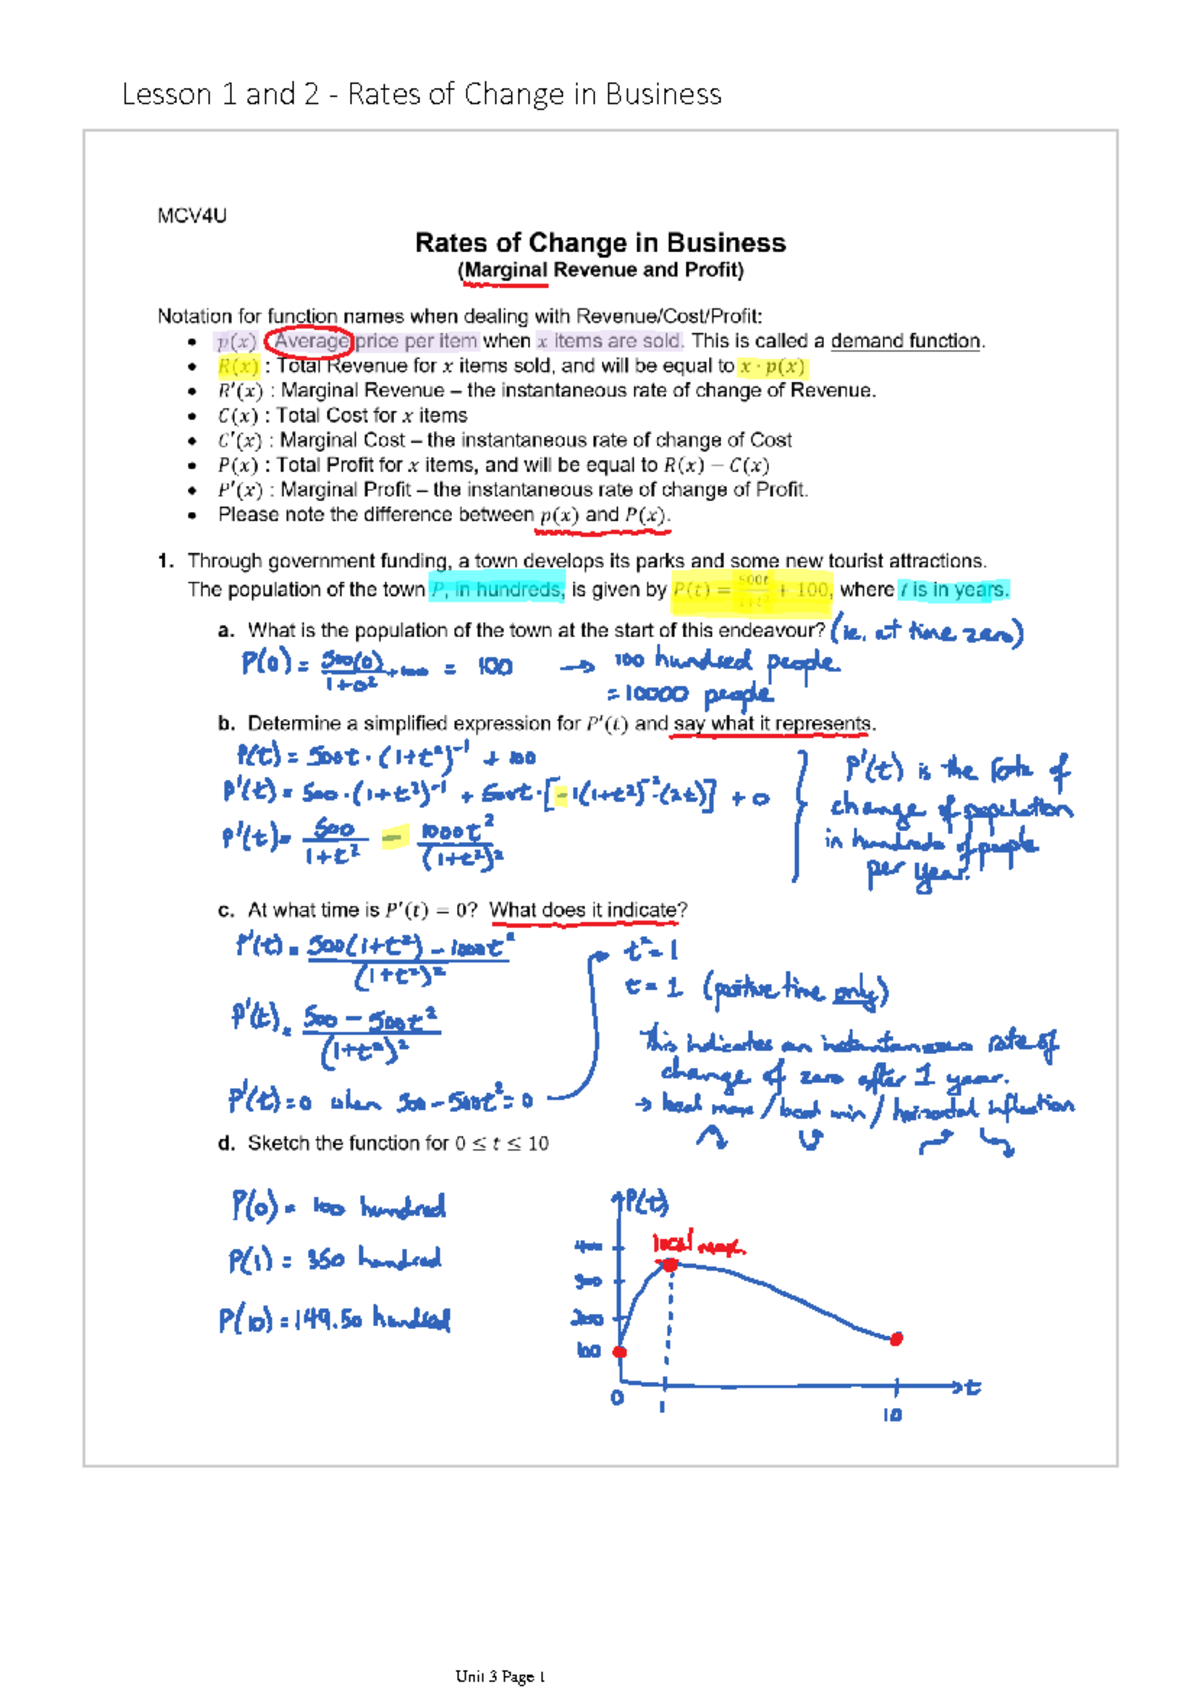 Lesson 1 and 2 - Rates of Change in Business
MCV4U
Rates of Change in Business
(Marginal Revenue and Profit)
Notation for function names when dealing with Revenue/Cost/Profit:
• p(x) Average price per item when x items are sold. This is called a demand function.
• R(x) : Total Revenue for x items sold, and will be equal to x · p(x)
• R'(x) : Marginal Revenue – the instantaneous rate of change of Revenue.
• C(x) : Total Cost for x items
• C'(x) : Marginal Cost – the instantaneous rate of change of Cost
• P(x) : Total Profit for x items, and will be equal to R(x) − C(x)
• P'(x) : Marginal Profit – the instantaneous rate of change of Profit.
• Please note the difference between p(x) and P(x).
1. Through government funding, a town develops its parks and some new tourist attractions.
The population of the town P, in hundreds, is given by P(t) = 500t/(1+t²) + 100, where t is in years.
a. What is the population of the town at the start of this endeavour? (ie. at time zero)
P(0) = 500(0)/(1+0²) + 100 = 100 → 100 hundred people
= 10000 people
b. Determine a simplified expression for P'(t) and say what it represents.
P(t) = 500t · (1+t²)⁻¹ + 100
P'(t) = 500 · (1+t²)⁻¹ + 500t · [-1(1+t²)⁻² · (2t)] + 0
P'(t) = 500/(1+t²) − 1000t²/(1+t²)²
P'(t) is the rate of
change of population
in hundreds of people
per year.
c. At what time is P'(t) = 0? What does it indicate?
P'(t) = (500(1+t²) − 1000t²)/(1+t²)²
P'(t) = (500 − 500t²)/(1+t²)²
P'(t) = 0 when 500 − 500t² = 0
t² = 1
t = 1 (positive time only)
This indicates an instantaneous rate of
change of zero after 1 year.
→ local max / local min / horizontal inflection
d. Sketch the function for 0 ≤ t ≤ 10
P(0) = 100 hundred
P(1) = 350 hundred
P(10) = 149.50 hundred
P(t)
local max.
400
300
200
100
0
1
10
t
Unit 3 Page 1